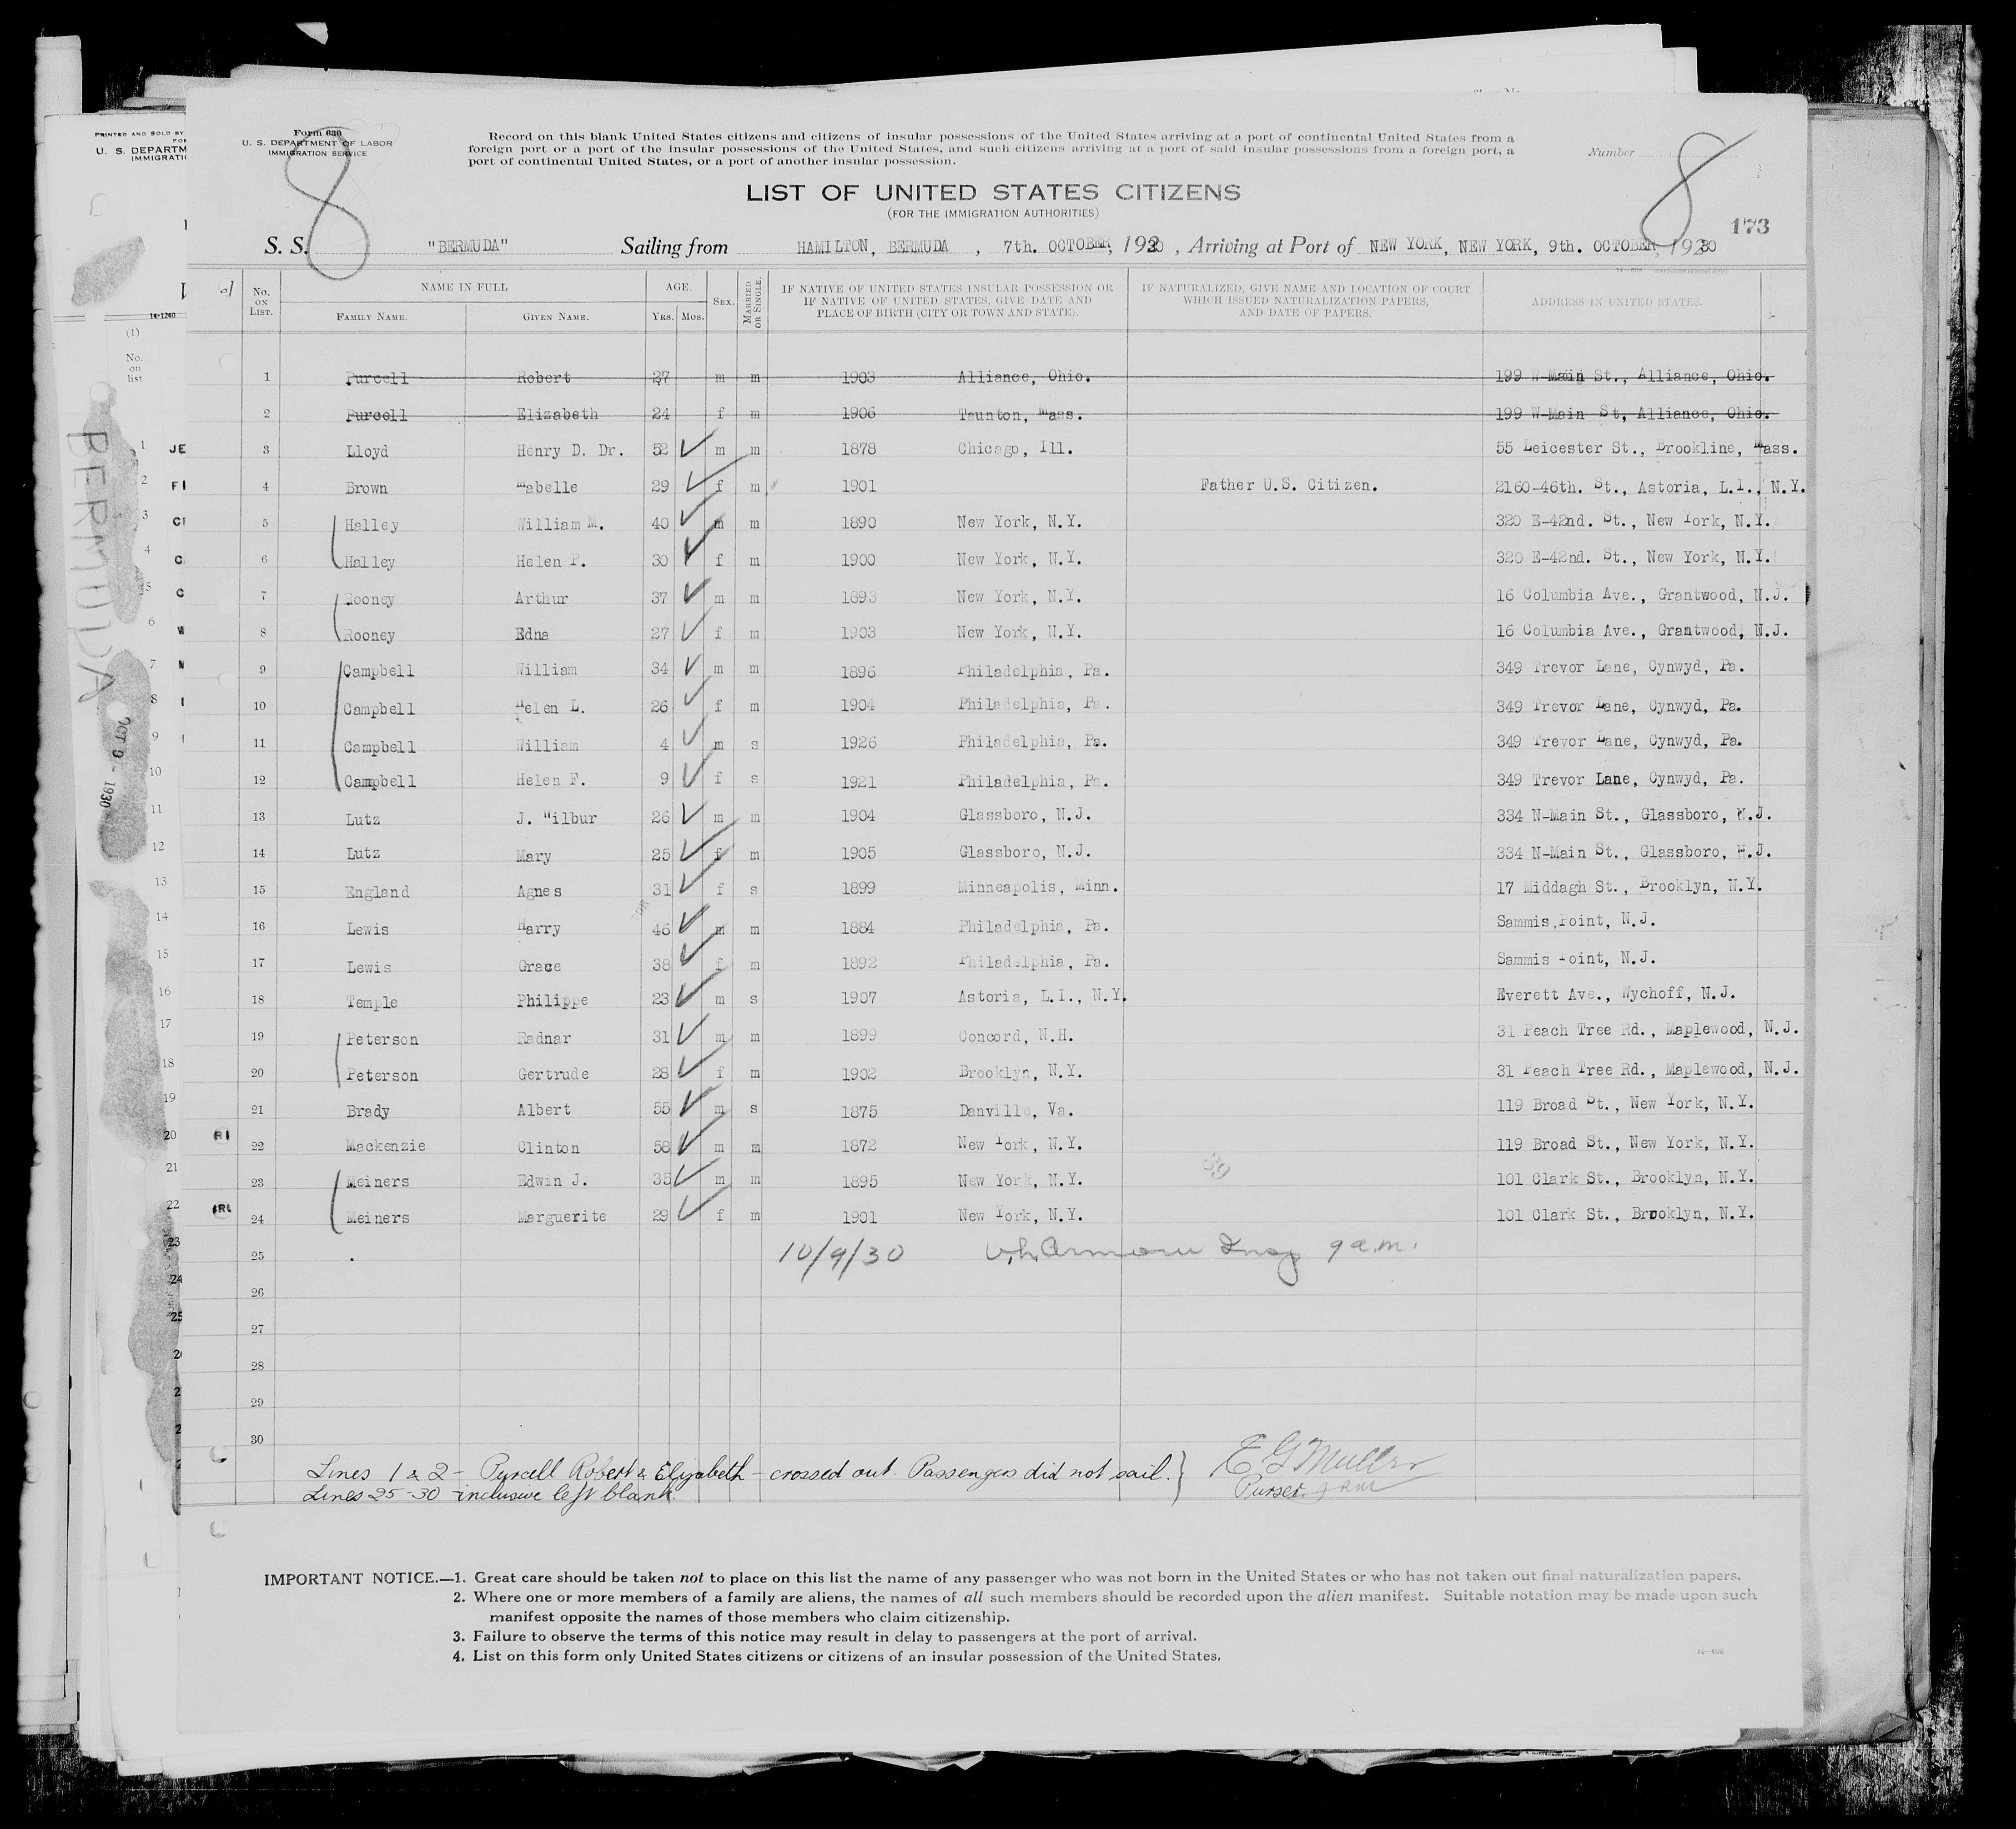 PRINTED AND SOLD BY
U. S. DEPARTM
IMMIGRATI
Form 630
U. S. DEPARTMENT OF LABOR
IMMIGRATION SERVICE
8
Record on this blank United States citizens and citizens of insular possessions of the United States arriving at a port of continental United States from a
foreign port or a port of the insular possessions of the United States, and such citizens arriving at a port of said insular possessions from a foreign port, a
port of continental United States, or a port of another insular possession.
Number
8
173
LIST OF UNITED STATES CITIZENS
(FOR THE IMMIGRATION AUTHORITIES)
S. S. "BERMUDA" Sailing from HAMILTON, BERMUDA , 7th. OCTOBER, 1930 , Arriving at Port of NEW YORK, NEW YORK, 9th. OCTOBER, 1930
No. ON LIST. NAME IN FULL FAMILY NAME. GIVEN NAME. AGE. YRS. MOS. SEX. MARRIED OR SINGLE. IF NATIVE OF UNITED STATES INSULAR POSSESSION OR IF NATIVE OF UNITED STATES, GIVE DATE AND PLACE OF BIRTH (CITY OR TOWN AND STATE). IF NATURALIZED, GIVE NAME AND LOCATION OF COURT WHICH ISSUED NATURALIZATION PAPERS, AND DATE OF PAPERS. ADDRESS IN UNITED STATES.
1 Purcell Robert 27 m m 1903 Alliance, Ohio. 199 W-Main St., Alliance, Ohio.
2 Purcell Elizabeth 24 f m 1906 Taunton, Mass. 199 W-Main St, Alliance, Ohio.
3 Lloyd Henry D. Dr. 52 ✓ m m 1878 Chicago, Ill. 55 Leicester St., Brookline, Mass.
4 Brown Mabelle 29 ✓ f m 1901 Father U.S. Citizen. 2160-46th. St., Astoria, L.I., N.Y.
5 Halley William M. 40 ✓ m m 1890 New York, N.Y. 320 E-42nd. St., New York, N.Y.
6 Halley Helen P. 30 ✓ f m 1900 New York, N.Y. 320 E-42nd. St., New York, N.Y.
7 Rooney Arthur 37 ✓ m m 1893 New York, N.Y. 16 Columbia Ave., Grantwood, N.J.
8 Rooney Edna 27 ✓ f m 1903 New York, N.Y. 16 Columbia Ave., Grantwood, N.J.
9 Campbell William 34 ✓ m m 1896 Philadelphia, Pa. 349 Trevor Lane, Cynwyd, Pa.
10 Campbell Helen L. 26 ✓ f m 1904 Philadelphia, Pa. 349 Trevor Lane, Cynwyd, Pa.
11 Campbell William 4 ✓ m s 1926 Philadelphia, Pa. 349 Trevor Lane, Cynwyd, Pa.
12 Campbell Helen F. 9 ✓ f s 1921 Philadelphia, Pa. 349 Trevor Lane, Cynwyd, Pa.
13 Lutz J. Wilbur 26 ✓ m m 1904 Glassboro, N.J. 334 N-Main St., Glassboro, N.J.
14 Lutz Mary 25 ✓ f m 1905 Glassboro, N.J. 334 N-Main St., Glassboro, N.J.
15 England Agnes 31 ✓ f s 1899 Minneapolis, Minn. 17 Middagh St., Brooklyn, N.Y.
16 Lewis Harry 46 ✓ m m 1884 Philadelphia, Pa. Sammis,Point, N.J.
17 Lewis Grace 38 ✓ f m 1892 Philadelphia, Pa. Sammis Point, N.J.
18 Temple Philippe 23 ✓ m s 1907 Astoria, L.I., N.Y. Everett Ave., Wychoff, N.J.
19 Peterson Radnar 31 ✓ m m 1899 Concord, N.H. 31 Peach Tree Rd., Maplewood, N.J.
20 Peterson Gertrude 28 ✓ f m 1902 Brooklyn, N.Y. 31 Peach Tree Rd., Maplewood, N.J.
21 Brady Albert 55 ✓ m s 1875 Danville, Va. 119 Broad St., New York, N.Y.
22 Mackenzie Clinton 58 ✓ m m 1872 New York, N.Y. 119 Broad St., New York, N.Y.
23 Meiners Edwin J. 35 ✓ m m 1895 New York, N.Y. 101 Clark St., Brooklyn, N.Y.
24 Meiners Marguerite 29 ✓ f m 1901 New York, N.Y. 101 Clark St., Brooklyn, N.Y.
25 10/9/30 Insp 9 a.m.
26
27
28
29
30
Lines 1 & 2 - Purcell Robert & Elizabeth - crossed out. Passengers did not sail. } E G Muller
Lines 25-30 inclusive left blank. Purser
IMPORTANT NOTICE.—1. Great care should be taken not to place on this list the name of any passenger who was not born in the United States or who has not taken out final naturalization papers.
2. Where one or more members of a family are aliens, the names of all such members should be recorded upon the alien manifest. Suitable notation may be made upon such
manifest opposite the names of those members who claim citizenship.
3. Failure to observe the terms of this notice may result in delay to passengers at the port of arrival.
4. List on this form only United States citizens or citizens of an insular possession of the United States.
BERMUDA
OCT 9 - 1930